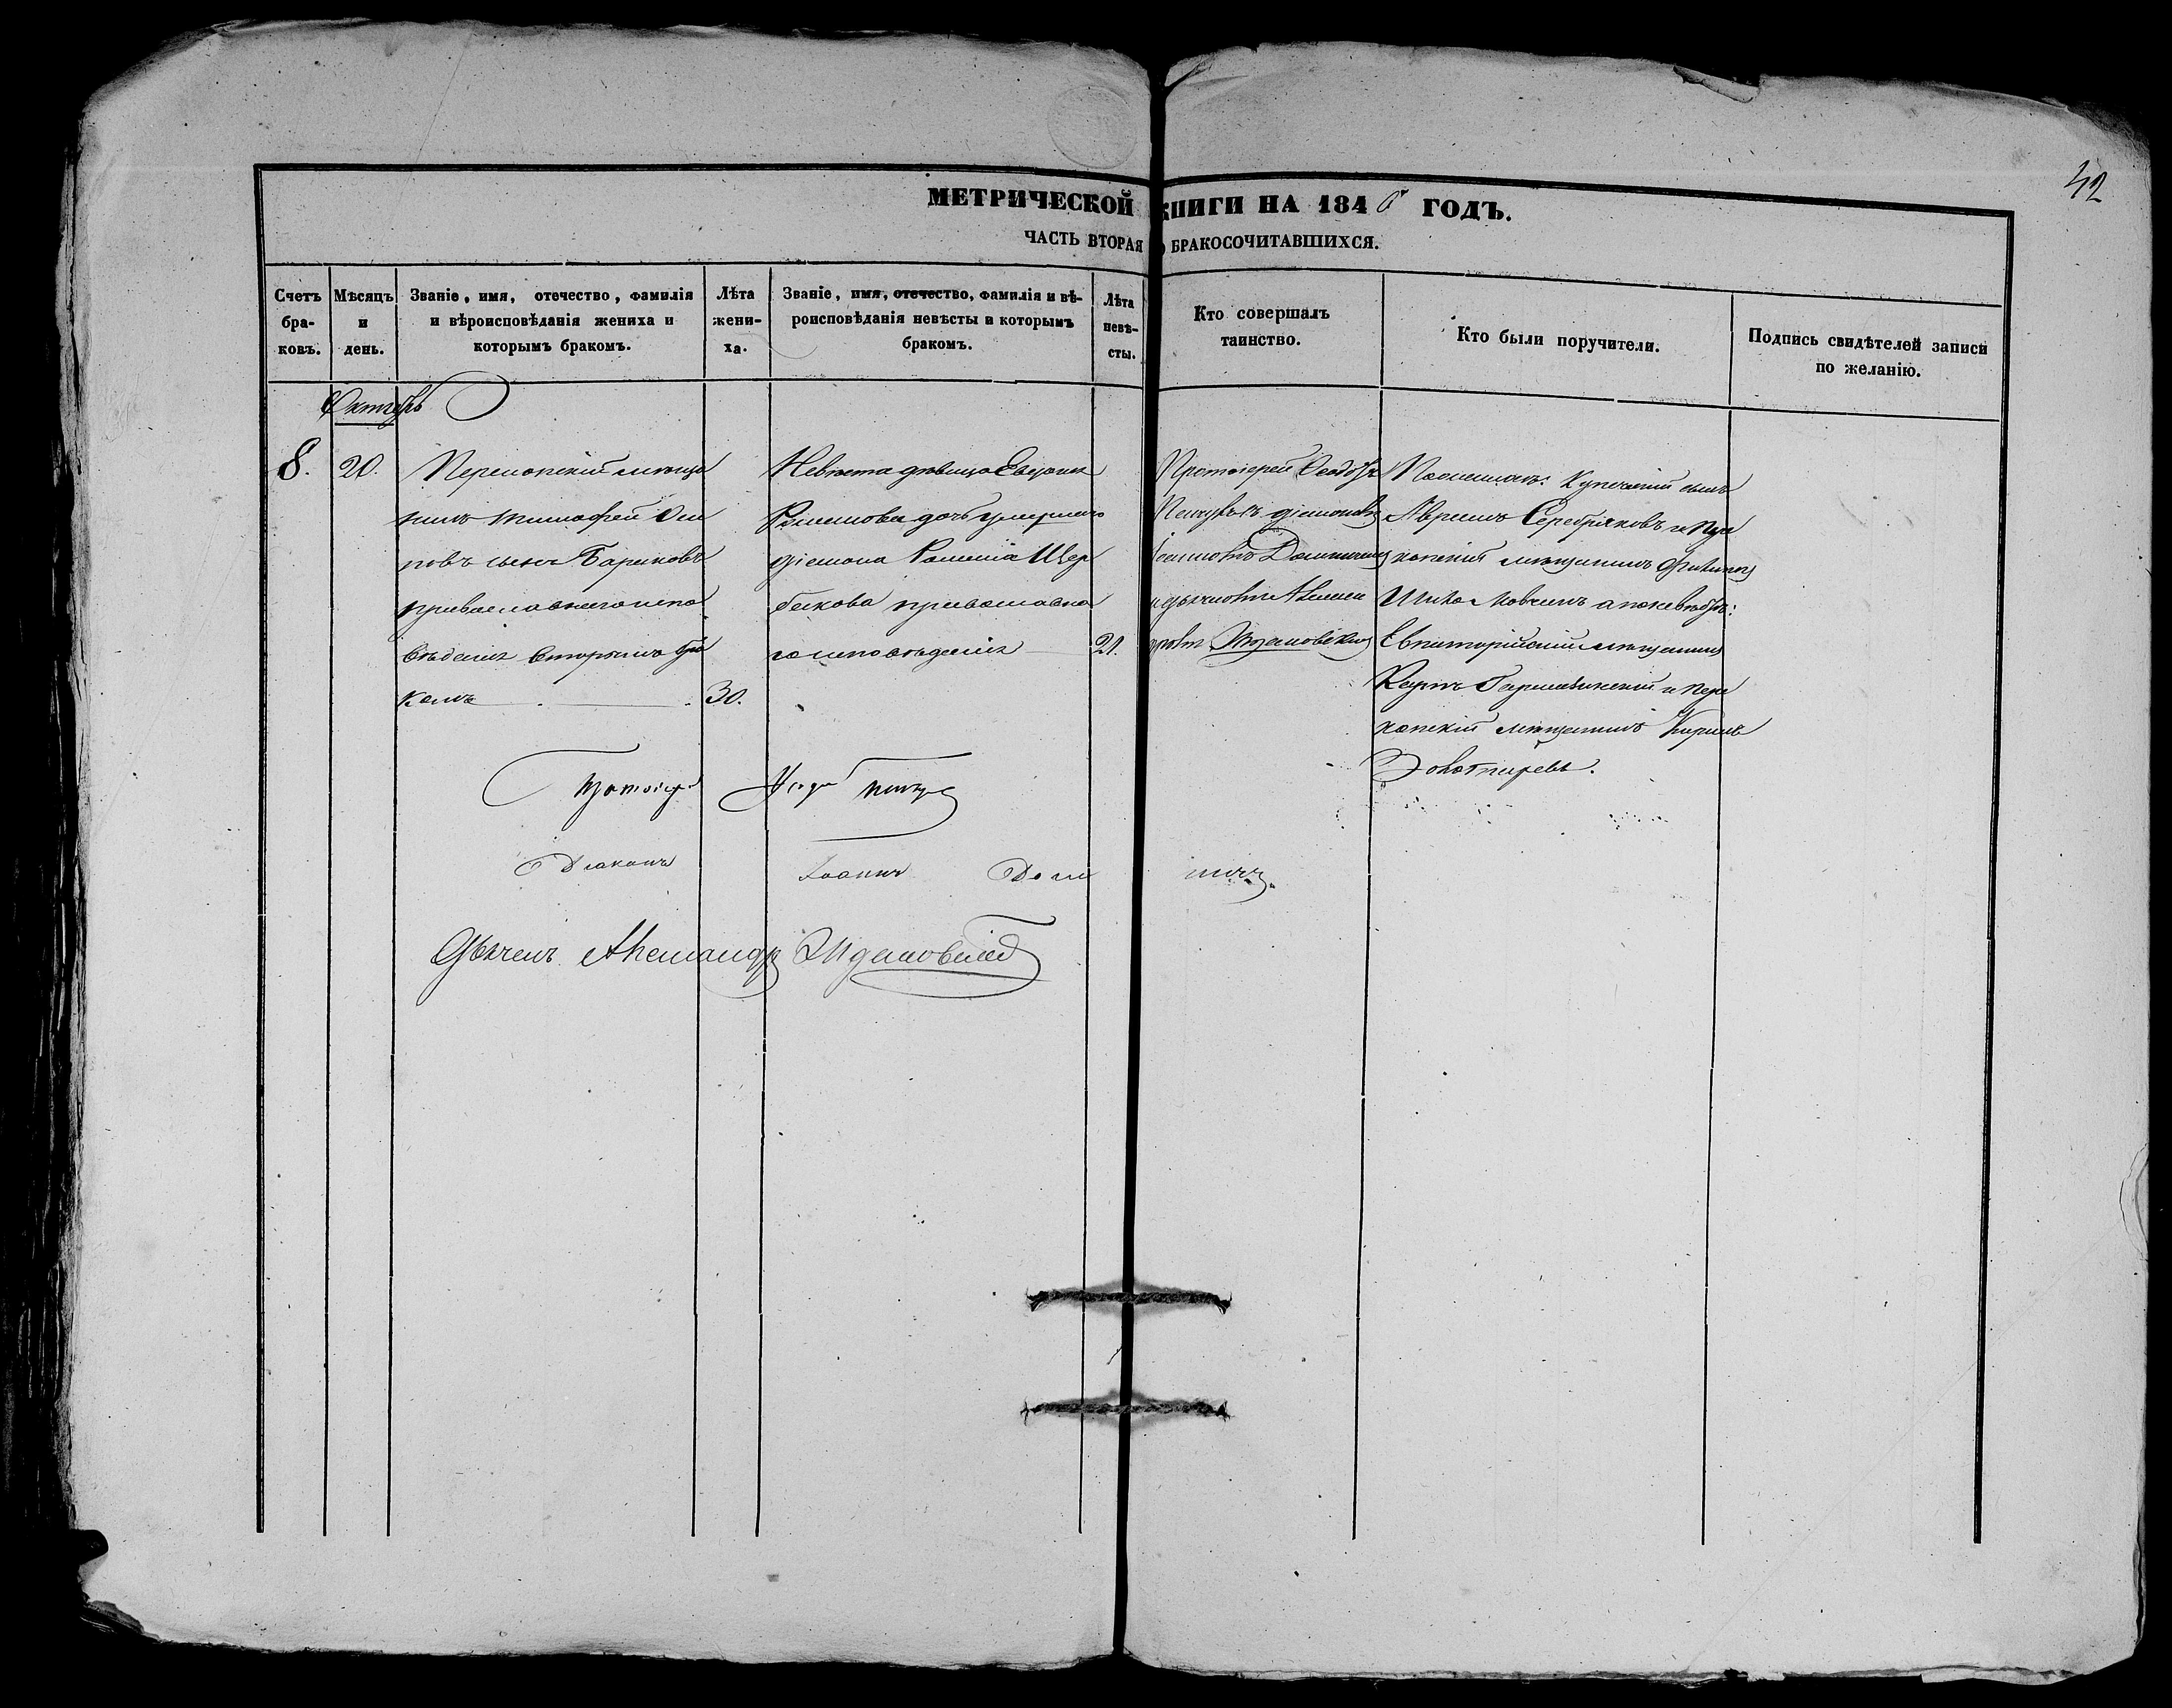 42
МЕТРИЧЕСКОЙ КНИГИ НА 1846 ГОДЪ.
ЧАСТЬ ВТОРАЯ О БРАКОСОЧИТАВШИХСЯ.
Счетъ бра-ковъ.
Мѣсяцъ и день.
Званіе, имя, отечество, фамилія
и вѣроисповѣданія жениха и
которымъ бракомъ.
Лѣта жени-ха.
Званіе, имя, отечество, фамилія и вѣ-
роисповѣданія невѣсты и которымъ
бракомъ.
Лѣта невѣ-сты.
Кто совершалъ
таинство.
Кто были поручители.
Подпись свидѣтелей записи
по желанію.
Октябрь
8.
20.
Перекопскій мѣща
нинъ Тимофей Оси
повъ сынъ Бариковъ
православнаго испо
вѣданія вторымъ бра
комъ
30.
Невѣста дѣвица
дочь умершаго
діакона Щер
бакова православна
го исповѣданія
21.
Протоіерей Ѳеодоръ
съ діакономъ
Іоанномъ
и дьячкомъ Алексан
дромъ
По женихѣ: Купеческій сынъ
Серебряковъ и Пере
копскій мѣщанинъ Филипъ
а по невѣстѣ:
Евпаторійскій мѣщанинъ
и Пере
копскій мѣщанинъ Кирилъ
Золотаревъ.
Протоіерей
Діаконъ Іоаннъ
Дьячекъ Александръ